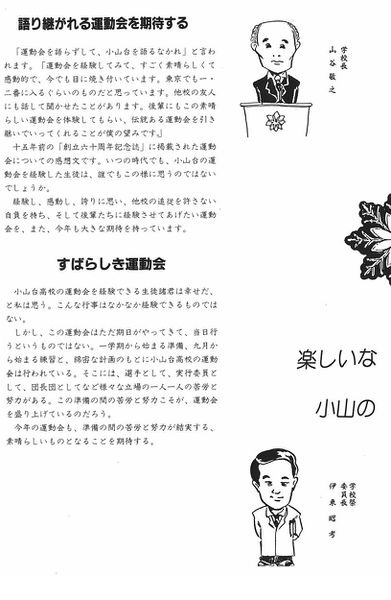 語り継がれる運動会を期待する
学校長
山谷敬之
「運動会を語らずして、小山台を語るなかれ」と言わ
れます。「運動会を経験してみて、すごく素晴らしくて
感動的で、今でも目に焼き付いています。東京でも一・
二番に入るぐらいのものだと思っています。他校の友人
にも話して聞かせたことがあります。後輩にもこの素晴ら
しい運動会を体験してもらい、伝統ある運動会を引き
継いでいってくれることが僕の望みです。」
十五年前の「創立六十周年記念誌」に掲載された運動
会についての感想文です。いつの時代でも、小山台の運
動会を経験した生徒は、誰でもこの様に思うのではない
でしょうか。
経験し、感動し、誇りに思い、他校の追従を許さない
自負を持ち、そして後輩たちに経験させてあげたい運動
会を、また、今年も大きな期待を持っています。
すばらしき運動会
学校祭
委員長
伊東昭考
小山台高校の運動会を経験できる生徒諸君は幸せだ、
と私は思う。こんな行事はなかなか経験できるものでは
ない。
しかし、この運動会はただ期日がやってきて、当日行
うというものではない。一学期から始まる準備、九月か
ら始まる練習と、綿密な計画のもとに小山台高校の運動
会は行われている。そこには、選手として、実行委員と
して、団長団としてなど様々な立場の一人一人の苦労と
努力がある。この準備の間の苦労と努力こそが、運動会
を盛り上げているのだろう。
今年の運動会も、準備の間の苦労と努力が結実する、
素晴らしいものとなることを期待する。
楽しいな
小山の